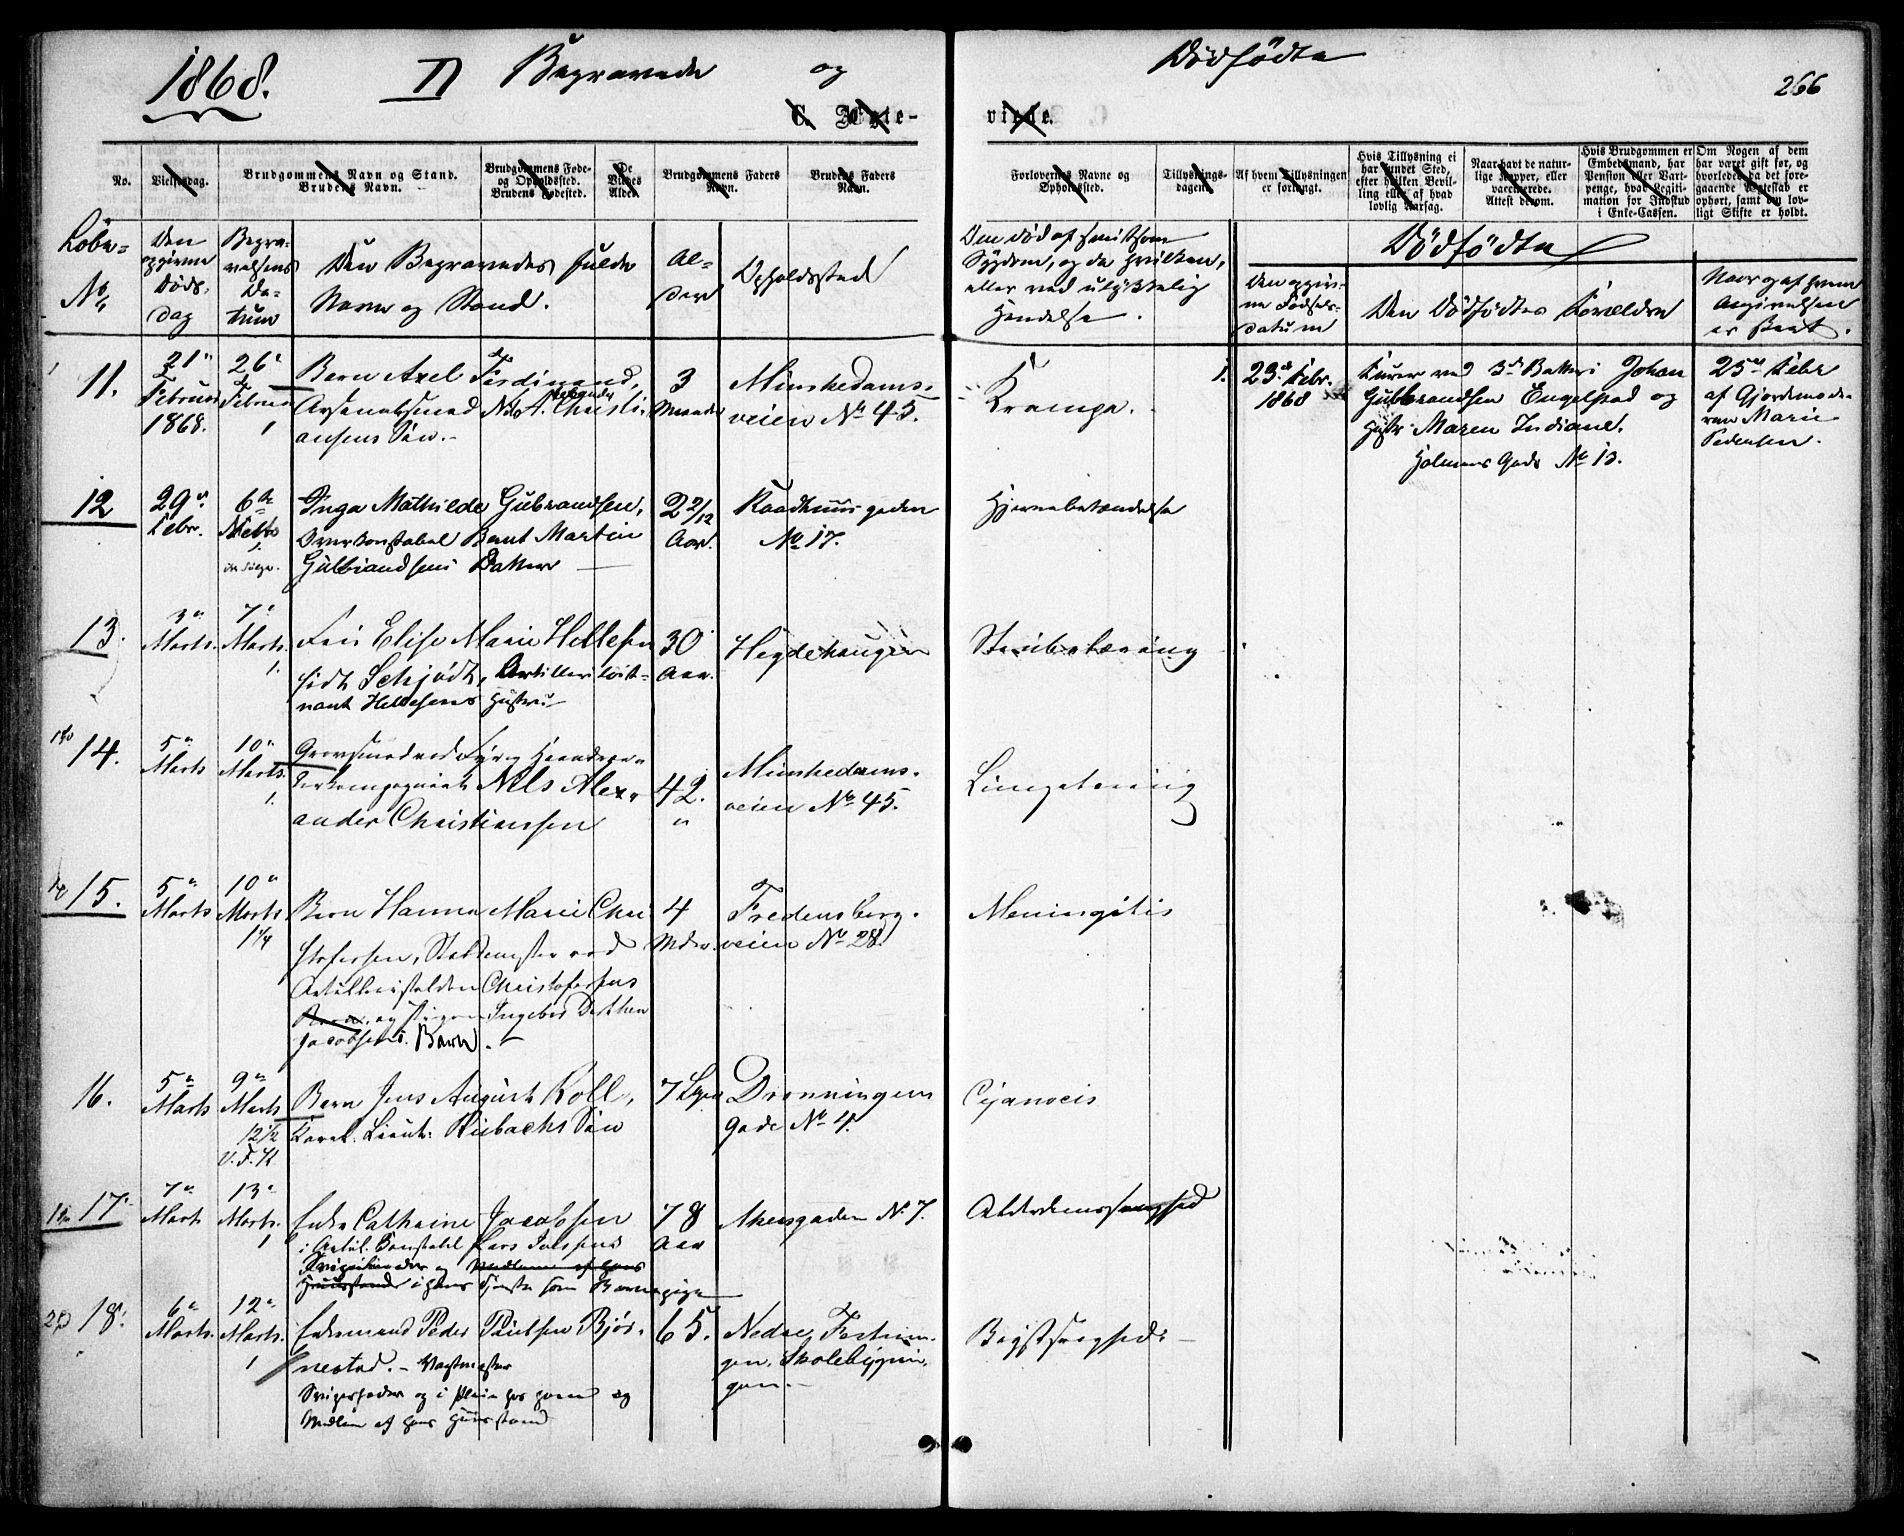 1868. D Begravede og Dødfødte 266
C. Ægte- viede.
No.
Vielsesdag.
Brudgommens Navn og Stand.
Brudens Navn.
Brudgommens Føde-
og Opholdssted.
Brudens Fødested.
De
Viedes
Alder.
Brudgommens Faders
Navn.
Brudens Faders
Navn.
Forlovernes Navne og
Opholdssted.
Tillysnings-
dagen.
Af hvem Tillysningen
er forlangt.
Hvis Tillysning ei
har fundet Sted,
efter hvilken Bevil-
ling eller af hvad
lovlig Aarsag.
Naar havt de natur-
lige Kopper, eller
vaccinerede.
Attest derom.
Hvis Brudgommen er
Embedsmand, har
Pension eller Vart-
penge, hvad Legiti-
mation for Indskud
i Enke-Cassen.
Om Nogen af dem
har været gift før, og
hvorledes da det fore-
gaaende Ægteskab er
ophørt, samt om lov-
ligt Skifte er holdt.
Løbe-
No
Den
opgivne
Døds-
dag
Begra-
velsens
Da-
tum
Den Begravedes fulde
Navn og Stand.
Al-
der
Opholdssted
Den død af smitsom
Sygdom, og da hvilken,
eller ved ulykkelig
Hendelse.
Dødfødte
Den opgiv-
ne Fødsels-
datum
Den Dødfødtes Forældre
Naar og af hvem
Angivelsen
er skeet.
11.
21
Februar
1868.
26
Februar
1
Barn Axel Ferdinand,
Arsenalsmed Nils A. Christi-
ansens Søn.
3
Maaneder
Munkedams-
veien No 45.
Krampe.
1.
23de Febr.
1868
Kurer ved 3de Batteri Johan
Gulbrandsen Engelstad og
Hustr. Maren Indiane.
Holmens Gade No 13.
25de Febr
af Gjordemode-
ren Marie
Pedersen.
12
29
Febr.
6te
1.
Inga Mathilde Gulbrandsen,
Overkonstabel Bernt Martin
Gulbrandsens Datter
2 2/12
Aar.
Raadhuusgaden
No 17.
Hjernebetændelse
13.
3
Marts.
7
Marts.
1.
Fru Elise Marie Hellesen
født Schjødt, Artilleriløit-
nant Hellesens Hustru
30
Aar.
Hegdehaugen
Strubetæring
14.
5
Marts
10
Marts.
1.
Grovsmed ved Fyr og Haandvær-
kerkompagniet Nils Alex-
ander Christiansen
42.
Munkedams-
veien No 45.
Lungetæring
15.
5
Marts
10
Marts
1 1/4
Barn Hanna Marie Chri
stofersen, Staldmester ved
Artilleristalden Christofersens
Barn, og Pigen Ingebor Dorthea
Jacobsens. Barn.
4
Mdr.
Fredensborg-
veien No 28.
Meningitis
16.
5
Marts
9
Marts
12 1/2
V.F.K
Barn Jens August Koll,
Kaval. Lieut. Rubachs Søn
7 Dage
Dronningens
Gade No 4.
Cyanosis
17.
7
Marts
13
Marts.
1
Enke Cathrine Jacobsen
i Artil. Constabel Lars Iversens
Svigermoder og Medlem af hans
Huusstand i hans Tjeneste som Barnepige
78
Aar
Akersgaden N. 7.
Alderdomssvaghed
18.
6
Marts.
12
Marts.
1
Enkemand Peder Paulsen Bjør-
nestad. - Vagtmester
Svigerfader og i Pleie hos ham og
Medlem af hans Huusstand
65.
Nedre Fæstnin-
gen, Skolebygnin-
gen.
Brystsvaghed